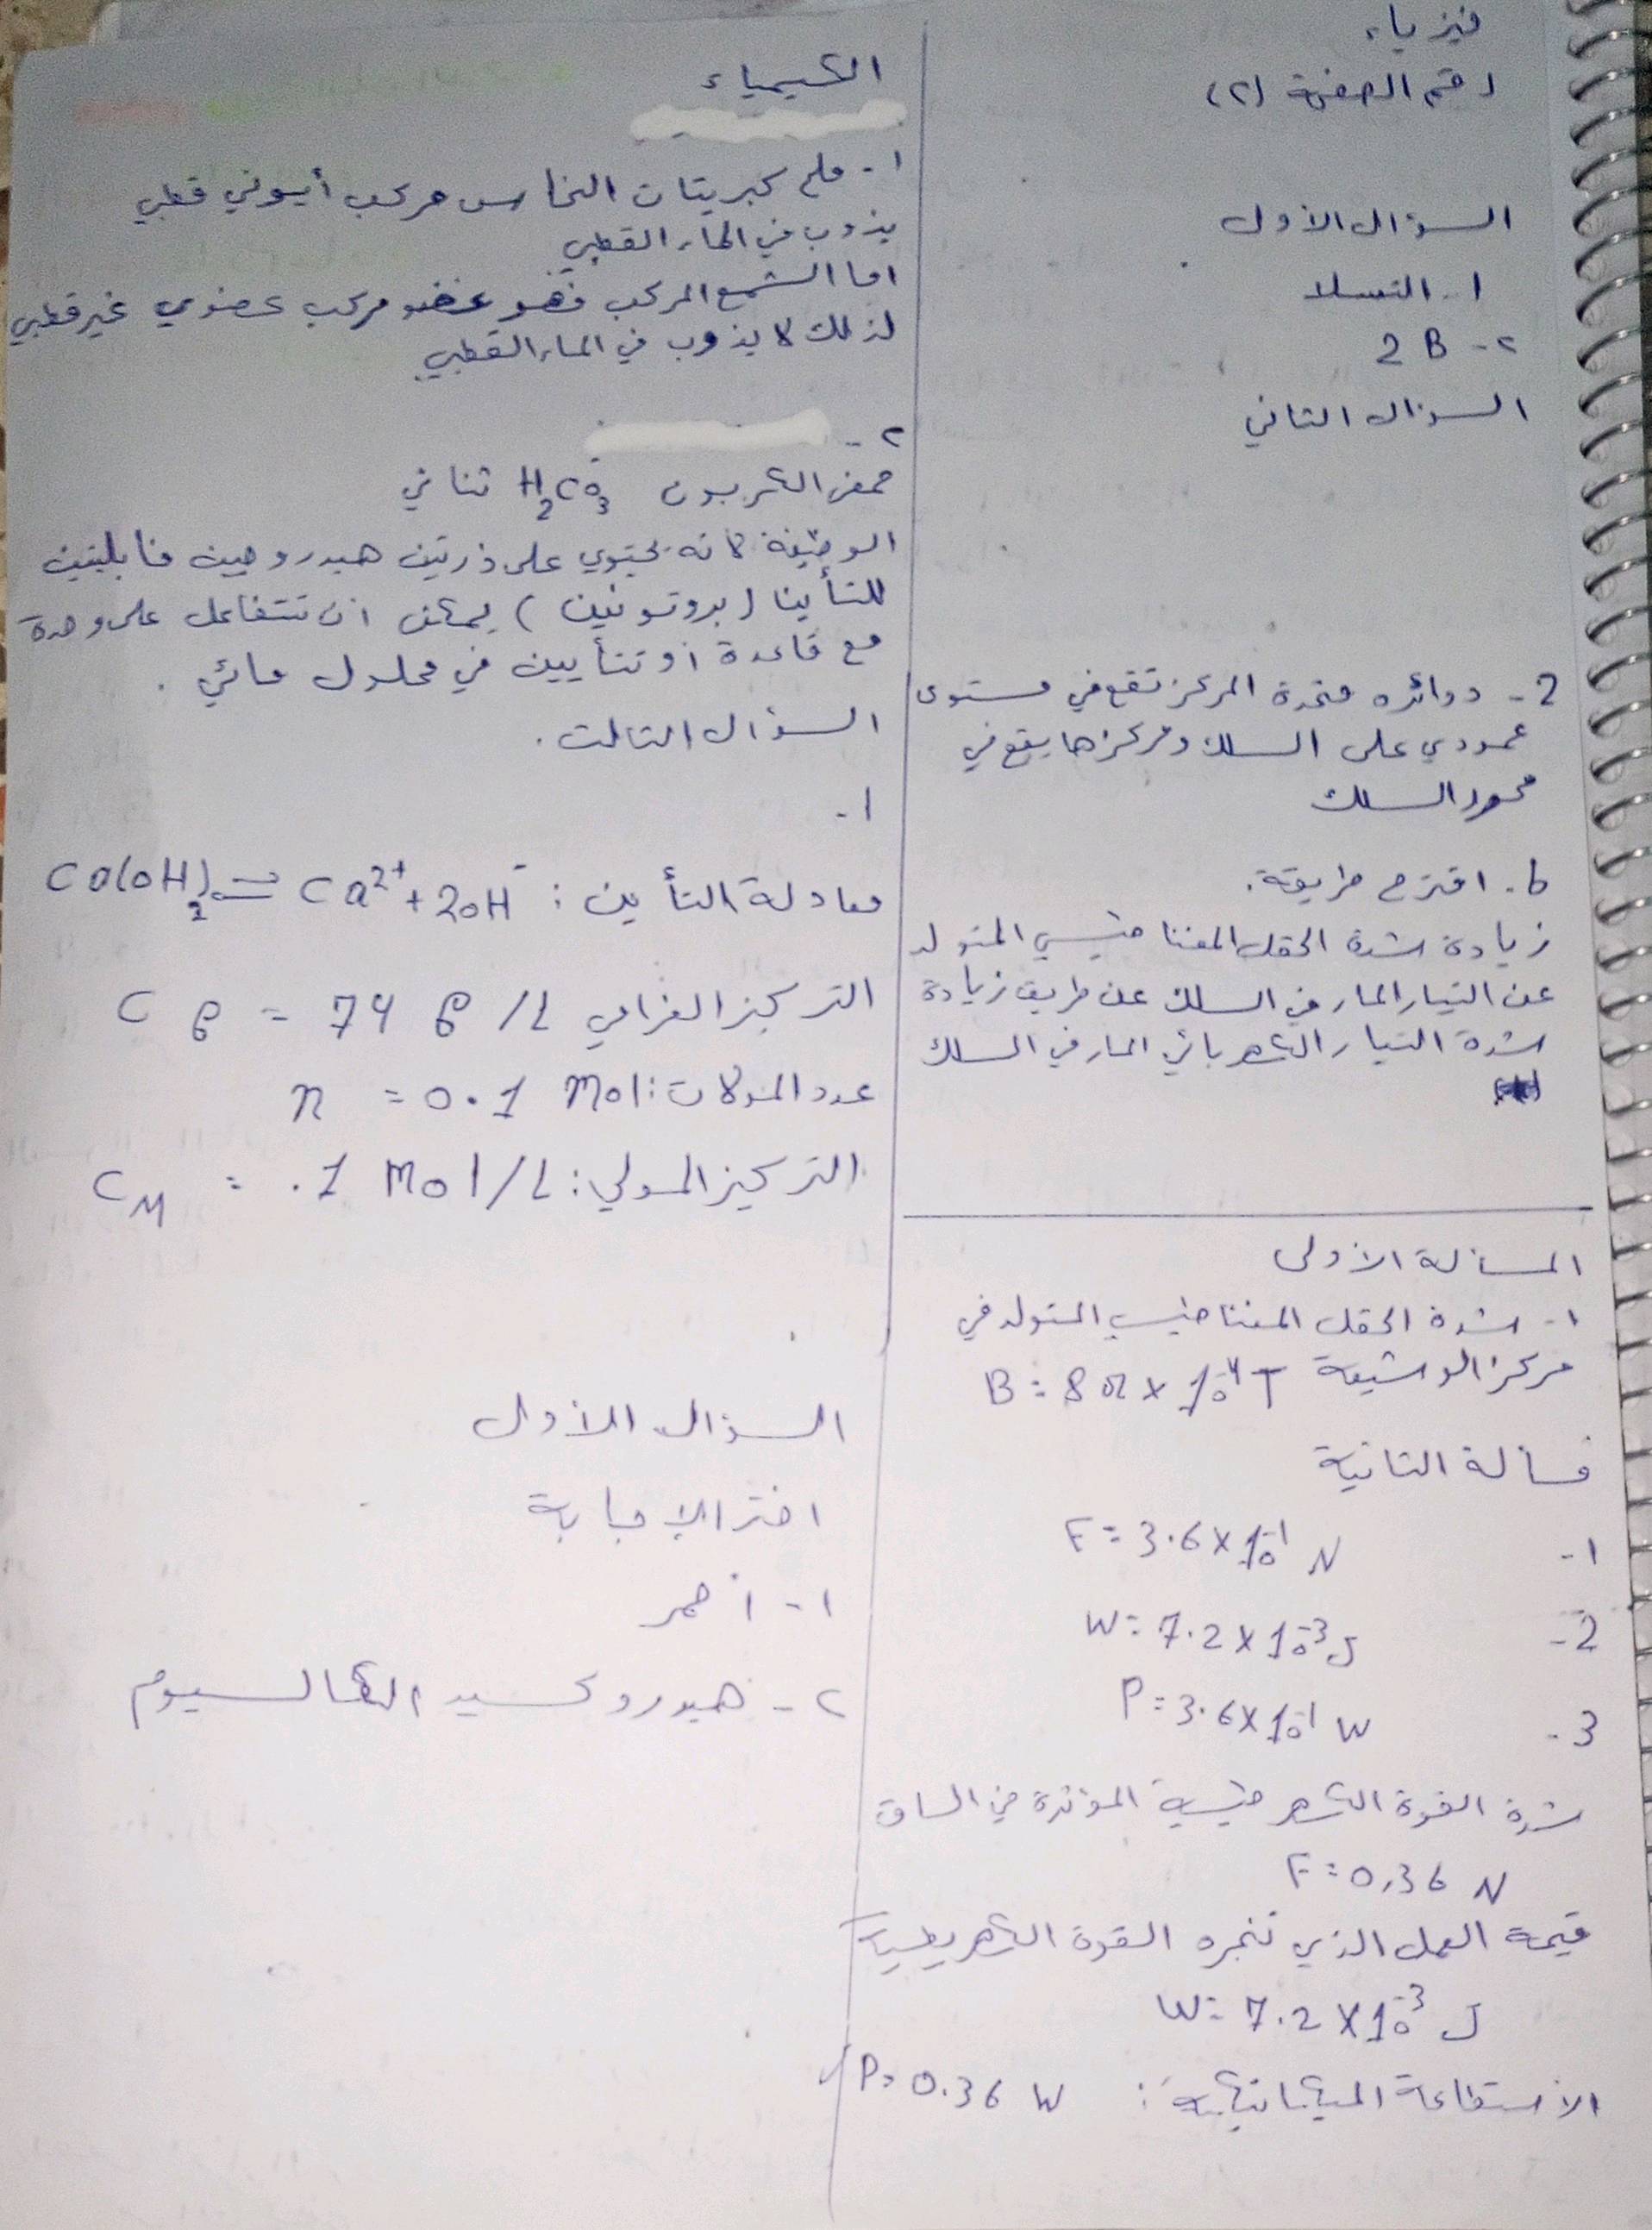 فيزياء
رقم الصفحة (٢)
السؤال الأول
١ - التسلا
٢ - 2 B
السؤال الثاني
2 - دوائره متحدة المركز تقع في مستوى
عمودي على السلك ومركزها يقع في
محور السلك
b. اقترح طريقة.
زيادة شدة الحقل المغناطيسي المتولد
عن التيار المار في السلك عن طريق زيادة
شدة التيار الكهربائي المار في السلك
المسألة الأولى
١ - شدة الحقل المغناطيسي المتولد في
مركز الوشيعة B = 8π × 10⁻⁴ T
مسألة الثانية
١ - F = 3.6 × 10⁻¹ N
2 - W = 7.2 × 10⁻³ J
3 - P = 3.6 × 10⁻¹ W
شدة القوة الكهرطيسية المؤثرة في الساق
F = 0,36 N
قيمة العمل الذي تنجزه القوة الكهرطيسية
W = 7.2 × 10⁻³ J
الاستطاعة الميكانيكية: P = 0.36 W
الكيمياء
١ - ملح كبريتات النحاس مركب أيوني قطبي
يذوب في الماء القطبي
اما الشمع المركب فهو عضو مركب عضوي غير قطبي
لذلك لا يذوب في الماء القطبي
٢ -
حمض الكربون H₂CO₃ ثنائي
الوظيفة لانه يحتوي على ذرتين هيدروجين قابليتين
للتأينا (بروتونين) يمكن ان تتفاعل على وحدة
مع قاعدة او تتأيين في محلول مائي .
السؤال الثالث.
١ -
معادلة التأين : Ca(OH)₂ = Ca²⁺ + 2OH⁻
التركيز الغرامي C g = 74 g /L
عدد المولات: n = 0.1 Mol
التركيز المولي: C_M = .1 Mol/L
السؤال الأول
اختر الإجابة
١ - أحمر
٢ - هيدروكسيد الكالسيوم